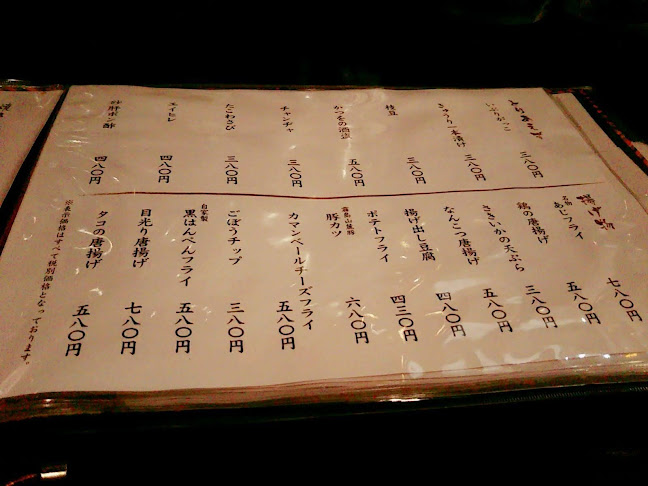 とりあえず
いぶりがっこ 三八〇円
きゅうり一本漬け 三八〇円
枝豆 三八〇円
かつおの酒盗 五八〇円
チャンヂャ 三八〇円
たこわさび 三八〇円
エイヒレ 四八〇円
砂肝ポン酢 四八〇円
揚げ物
名物 あじフライ 七八〇円
鶏の唐揚げ 五八〇円
さきいかの天ぷら 三八〇円
なんこつ唐揚げ 五八〇円
揚げ出し豆腐 四八〇円
ポテトフライ 四三〇円
霧島山麓豚 豚カツ 六八〇円
カマンベールチーズフライ 五八〇円
ごぼうチップ 三八〇円
自家製 黒はんぺんフライ 五八〇円
目光り唐揚げ 七八〇円
タコの唐揚げ 五八〇円
※表示価格はすべて税別価格となっております。